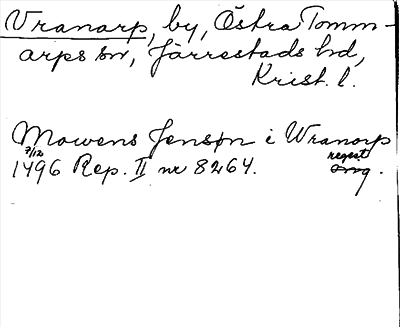 Vranarp, by, Östra Tomm-
arps sn, Järrestads hd,
Krist. l.
Mowens Jensøn i Wranarp
7/12 regest
1496 Rep. II nr 8264. omg.